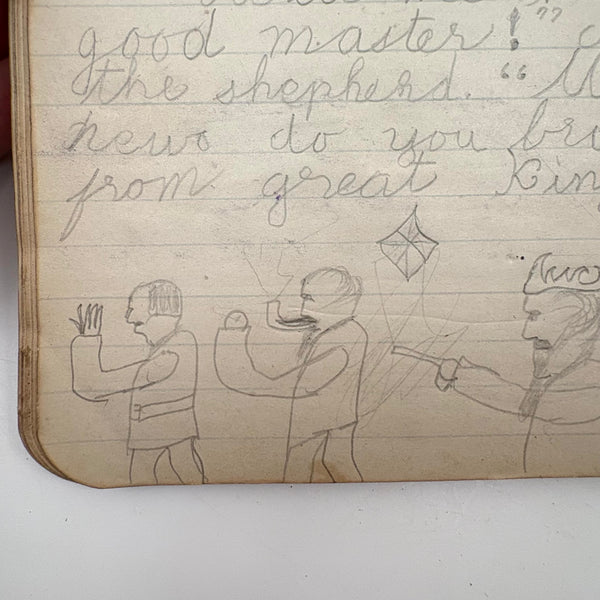 good master!”
the shepherd. “
news do you
from great